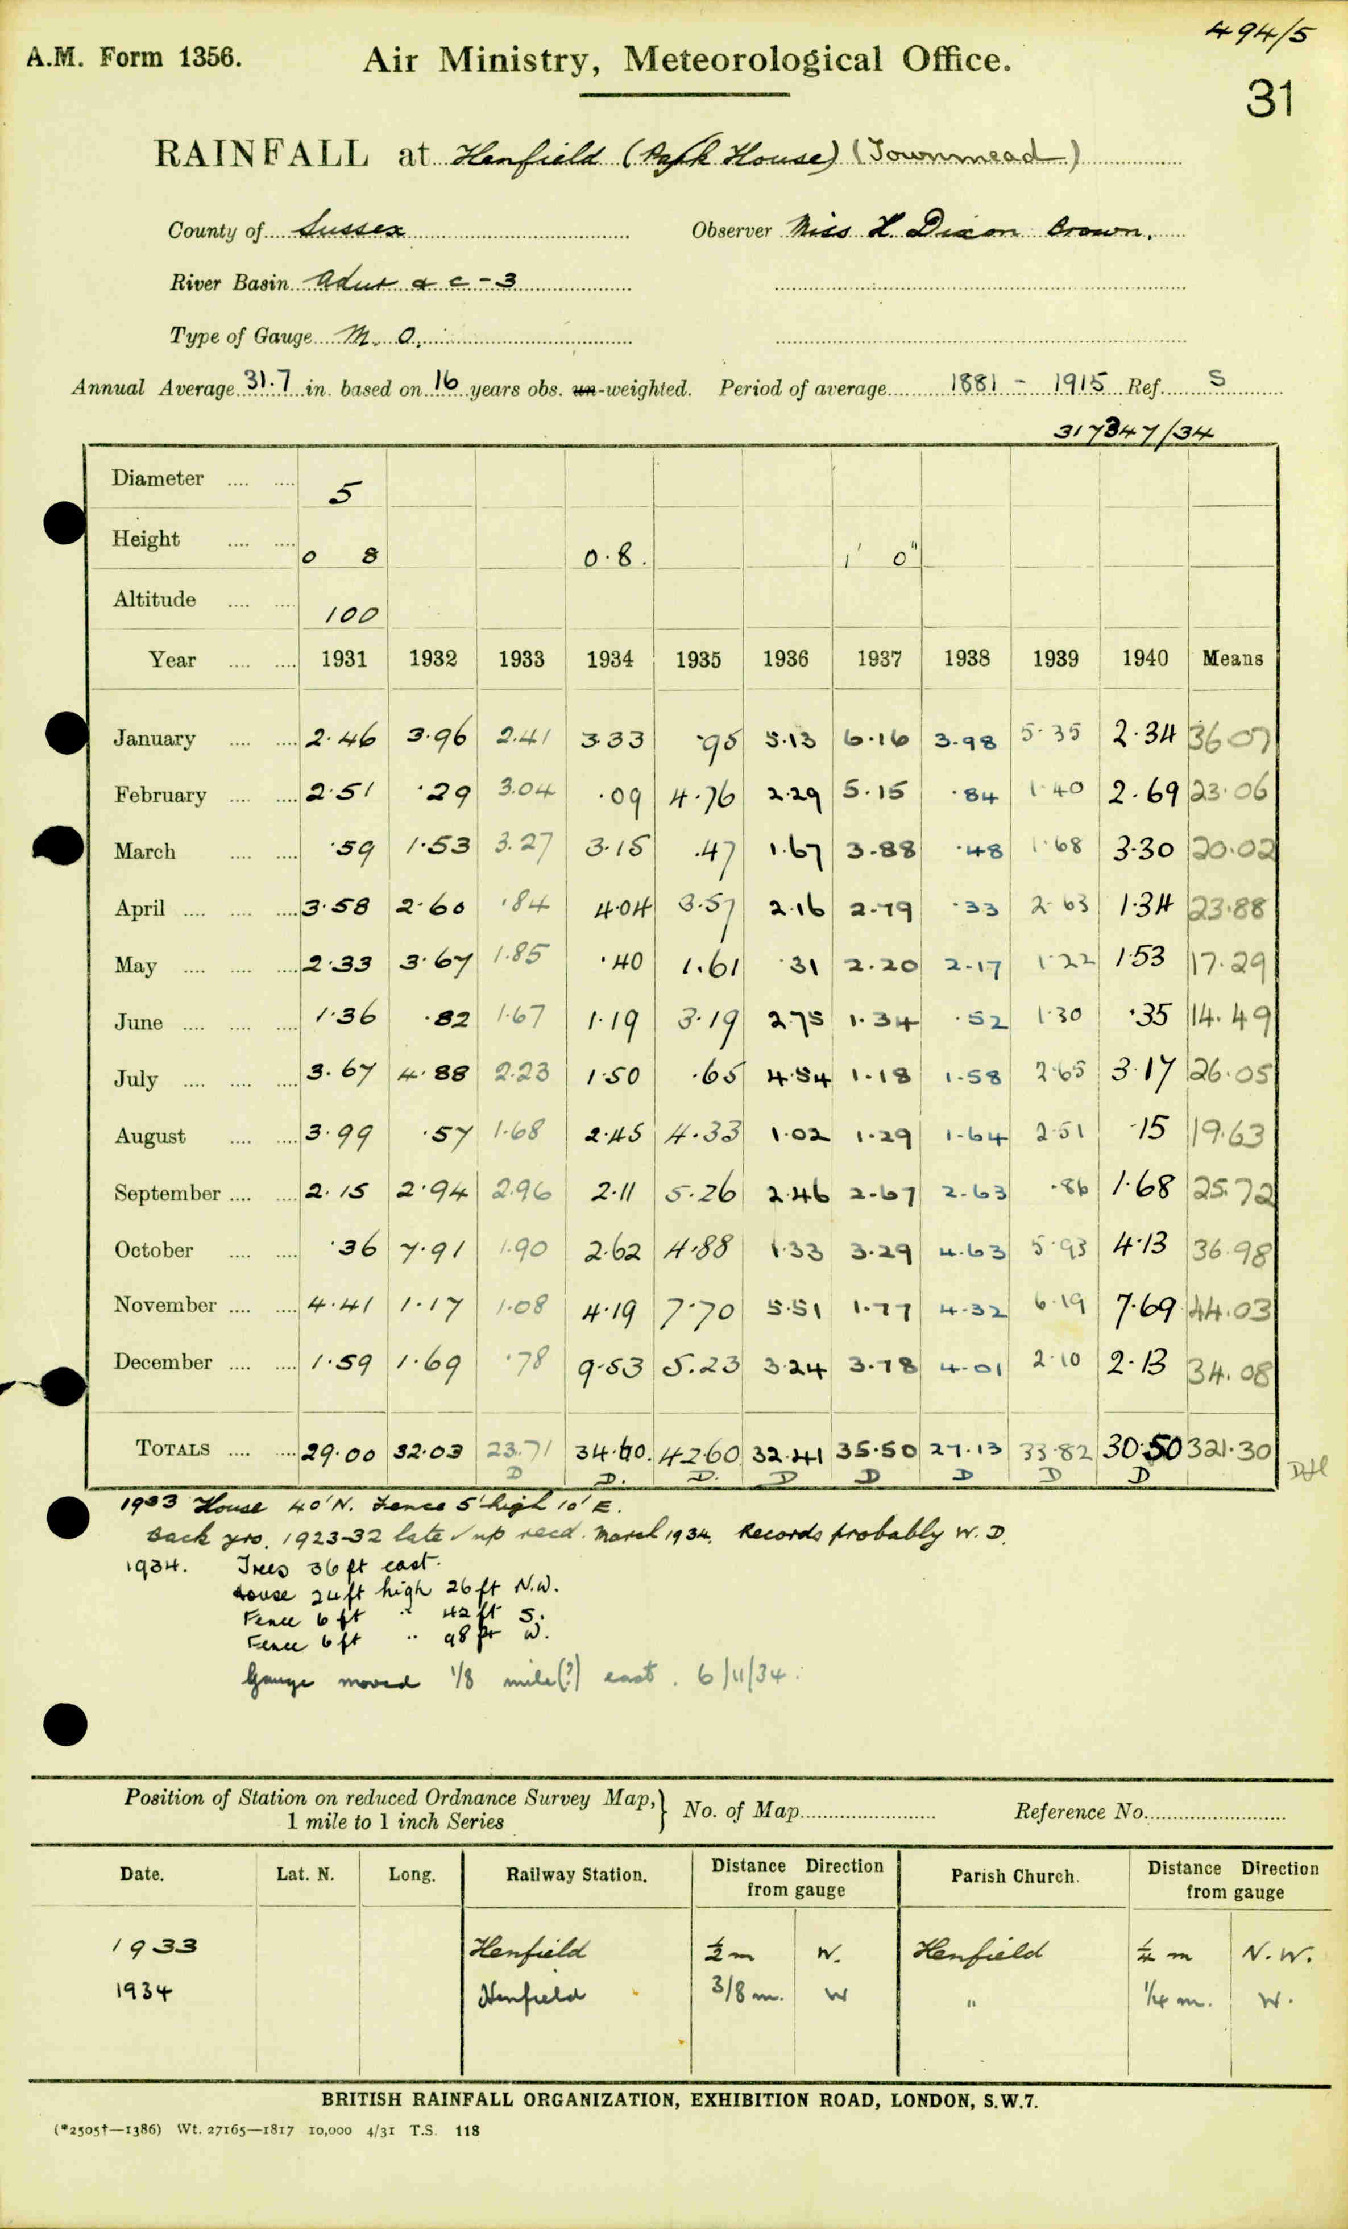 494/5
A.M. Form 1356. Air Ministry, Meteorological Office.
31
RAINFALL at Henfield (Park House) (Townmead)
County of Sussex Observer Miss H. Dixon Brown.
River Basin Adur & c - 3
Type of Gauge M. O.
Annual Average 31.7 in. based on 16 years obs. un-weighted. Period of average 1881 - 1915 Ref. S
317347/34
Diameter 5
Height 0 8 0.8. 1' 0"
Altitude 100
Year 1931 1932 1933 1934 1935 1936 1937 1938 1939 1940 Means
January 2.46 3.96 2.41 3.33 .95 5.13 6.16 3.98 5.35 2.34 36.07
February 2.51 .29 3.04 .09 4.76 2.29 5.15 .84 1.40 2.69 23.06
March .59 1.53 3.27 3.15 .47 1.67 3.88 .48 1.68 3.30 20.02
April 3.58 2.60 .84 4.04 3.57 2.16 2.79 .33 2.63 1.34 23.88
May 2.33 3.67 1.85 .40 1.61 .31 2.20 2.17 1.22 1.53 17.29
June 1.36 .82 1.67 1.19 3.19 2.75 1.34 .52 1.30 .35 14.49
July 3.67 4.88 2.23 1.50 .65 4.54 1.18 1.58 2.65 3.17 26.05
August 3.99 .57 1.68 2.45 4.33 1.02 1.29 1.64 2.51 .15 19.63
September 2.15 2.94 2.96 2.11 5.26 2.46 2.67 2.63 .86 1.68 25.72
October .36 7.91 1.90 2.62 4.88 1.33 3.29 4.63 5.93 4.13 36.98
November 4.41 1.17 1.08 4.19 7.70 5.51 1.77 4.32 6.19 7.69 44.03
December 1.59 1.69 .78 9.53 5.23 3.24 3.78 4.01 2.10 2.13 34.08
TOTALS 29.00 32.03 23.71 34.60. 42.60 32.41 35.50 27.13 33.82 30.50 321.30
D D. D. D D D D D
1933 House 40' N. Fence 5' high 10' E.
Back yrs. 1923-32 late up recd. March 1934. Records probably W. D.
1934. Trees 36 ft east.
House 24 ft high 26 ft N.W.
Fence 6 ft " 42 ft S.
Fence 6 ft " 98 ft W.
Gauge moved 1/8 mile(?) east. 6/11/34.
Position of Station on reduced Ordnance Survey Map, } No. of Map Reference No.
1 mile to 1 inch Series
Date. Lat. N. Long. Railway Station. Distance Direction from gauge Parish Church. Distance Direction from gauge
1933 Henfield ½ m W. Henfield ¼ m N.W.
1934 Henfield 3/8 m. W " 1/4 m. W.
BRITISH RAINFALL ORGANIZATION, EXHIBITION ROAD, LONDON, S.W.7.
(*2505†—1386) Wt. 27165—1817 10,000 4/31 T.S. 118